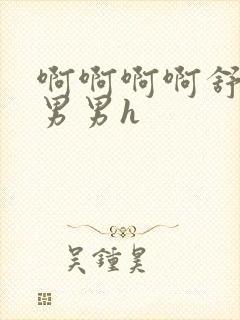 啊啊啊啊舒
男男h
吴鍾昊